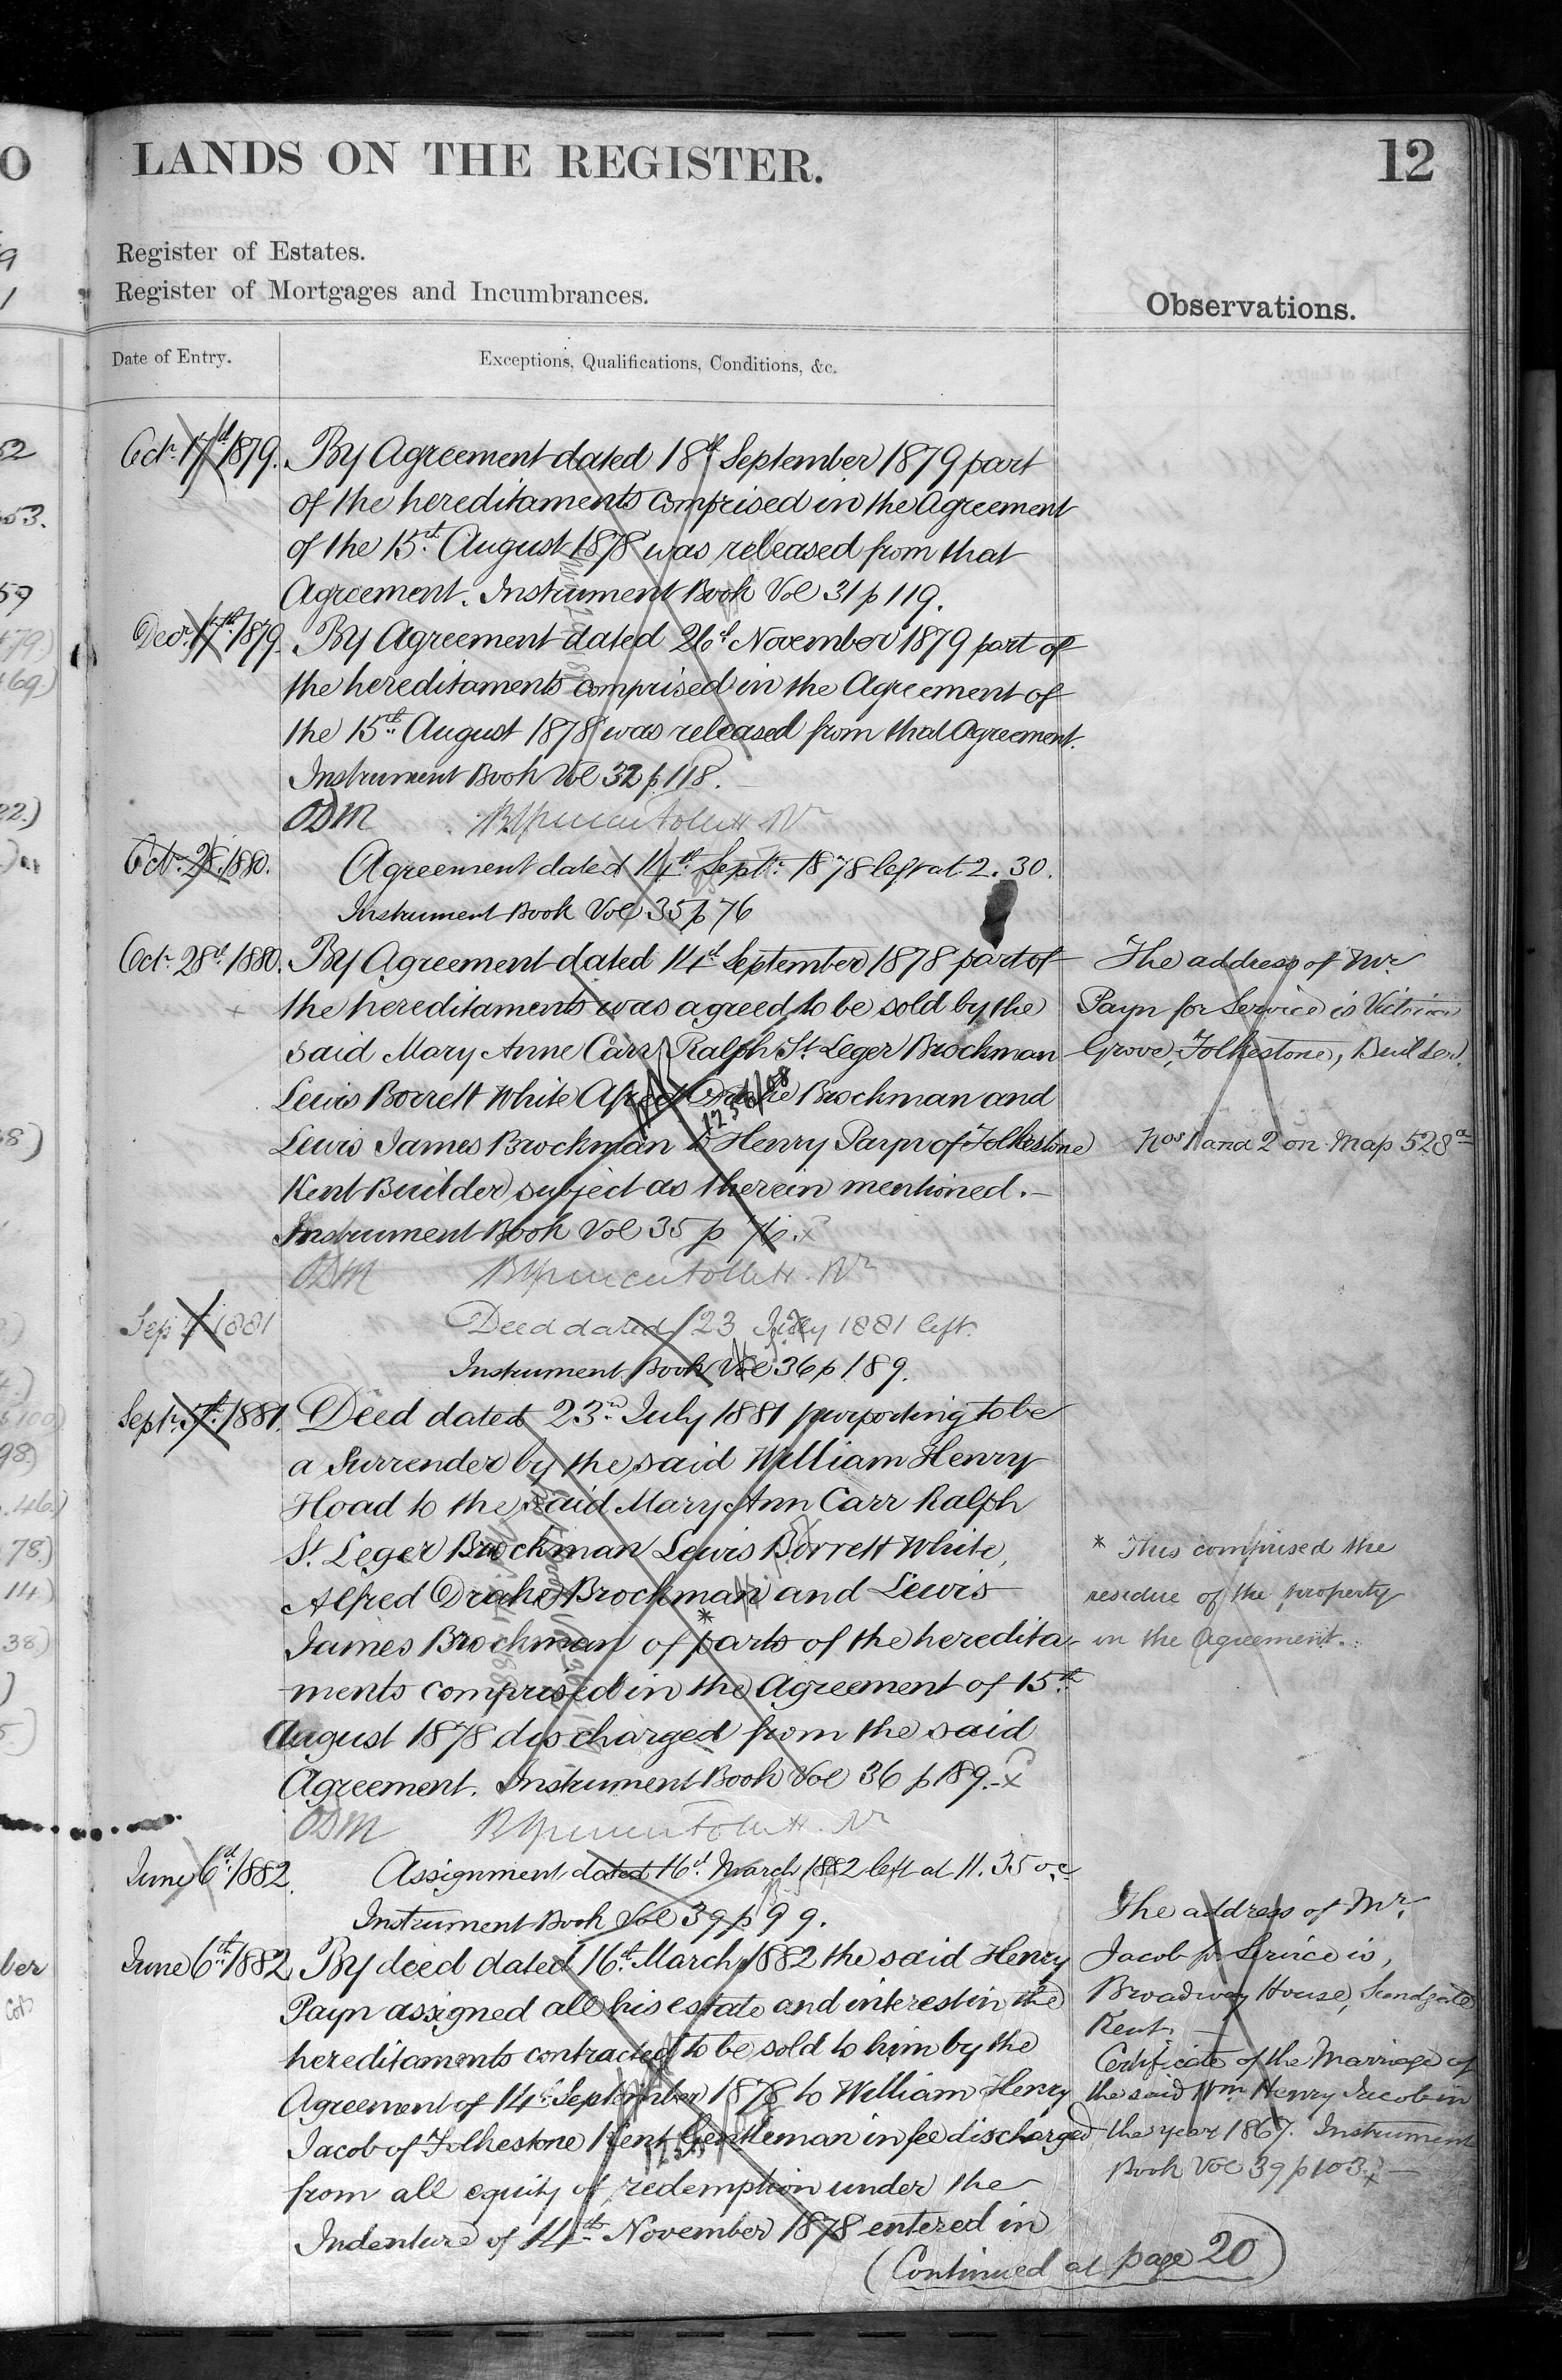 LANDS ON THE REGISTER.
12
Register of Estates.
Register of Mortgages and Incumbrances.
Observations.
Date of Entry.
Exceptions, Qualifications, Conditions, &c.
Octr. 17th 1879. By Agreement dated 18th September 1879 part
of the hereditaments comprised in the Agreement
of the 15th August 1878 was released from that
Agreement. Instrument Book Vol 31 p 119.
Decr. 17th 1879. By Agreement dated 26th November 1879 part of
the hereditaments comprised in the Agreement of
the 15th August 1878 was released from that Agreement.
Instrument Book Vol 32 p 118.
ODM
Octr. 28. 1880. Agreement dated 14th Septr. 1878 left at 2.30.
Instrument Book Vol 35 p 76
Octr. 28th 1880. By Agreement dated 14th September 1878 part of
the hereditaments was agreed to be sold by the
said Mary Anne Carr Ralph St Leger Brockman
Lewis Borrett White Alfred Drake Brockman and
Lewis James Brockman to Henry Payn of Folkestone
Kent Builder subject as therein mentioned.—
Instrument Book Vol 35 p 76. x
ODM
The address of Mr.
Payn for Service is Victoria
Grove, Folkestone, Builder.
Nos 1 and 2 on Map 528a
Sep 5 1881 Deed dated 23 July 1881 left.
Instrument Book Vol 36 p 189.
Septr. 5th. 1881. Deed dated 23rd July 1881 purporting to be
a Surrender by the said William Henry
Hoad to the said Mary Ann Carr Ralph
St. Leger Brockman Lewis Borrett White,
Alfred Drake Brockman and Lewis
James Brockman of * parts of the heredita-
ments comprised in the Agreement of 15th
August 1878 discharged from the said
Agreement. Instrument Book Vol 36 p 189.- x
ODM
* This comprised the
residue of the property
in the Agreement.
June 6th. 1882. Assignment dated 16th March 1882 left at 11.35 oc
Instrument Book Vol 39 p 99.
June 6th. 1882. By deed dated 16th March 1882 the said Henry
Payn assigned all his estate and interest in the
hereditaments contracted to be sold to him by the
Agreement of 14th September 1878 to William Henry
Jacob of Folkestone Kent Gentleman in fee discharged
from all equity of redemption under the
Indenture of 14th November 1878 entered in
(Continued at page 20)
The address of Mr.
Jacob for Service is,
Broadway House, Sandgate
Kent. —
Certificate of the Marriage of
the said Wm Henry Jacob in
the year 1867. Instrument
Book Vol 39 p 103 x —